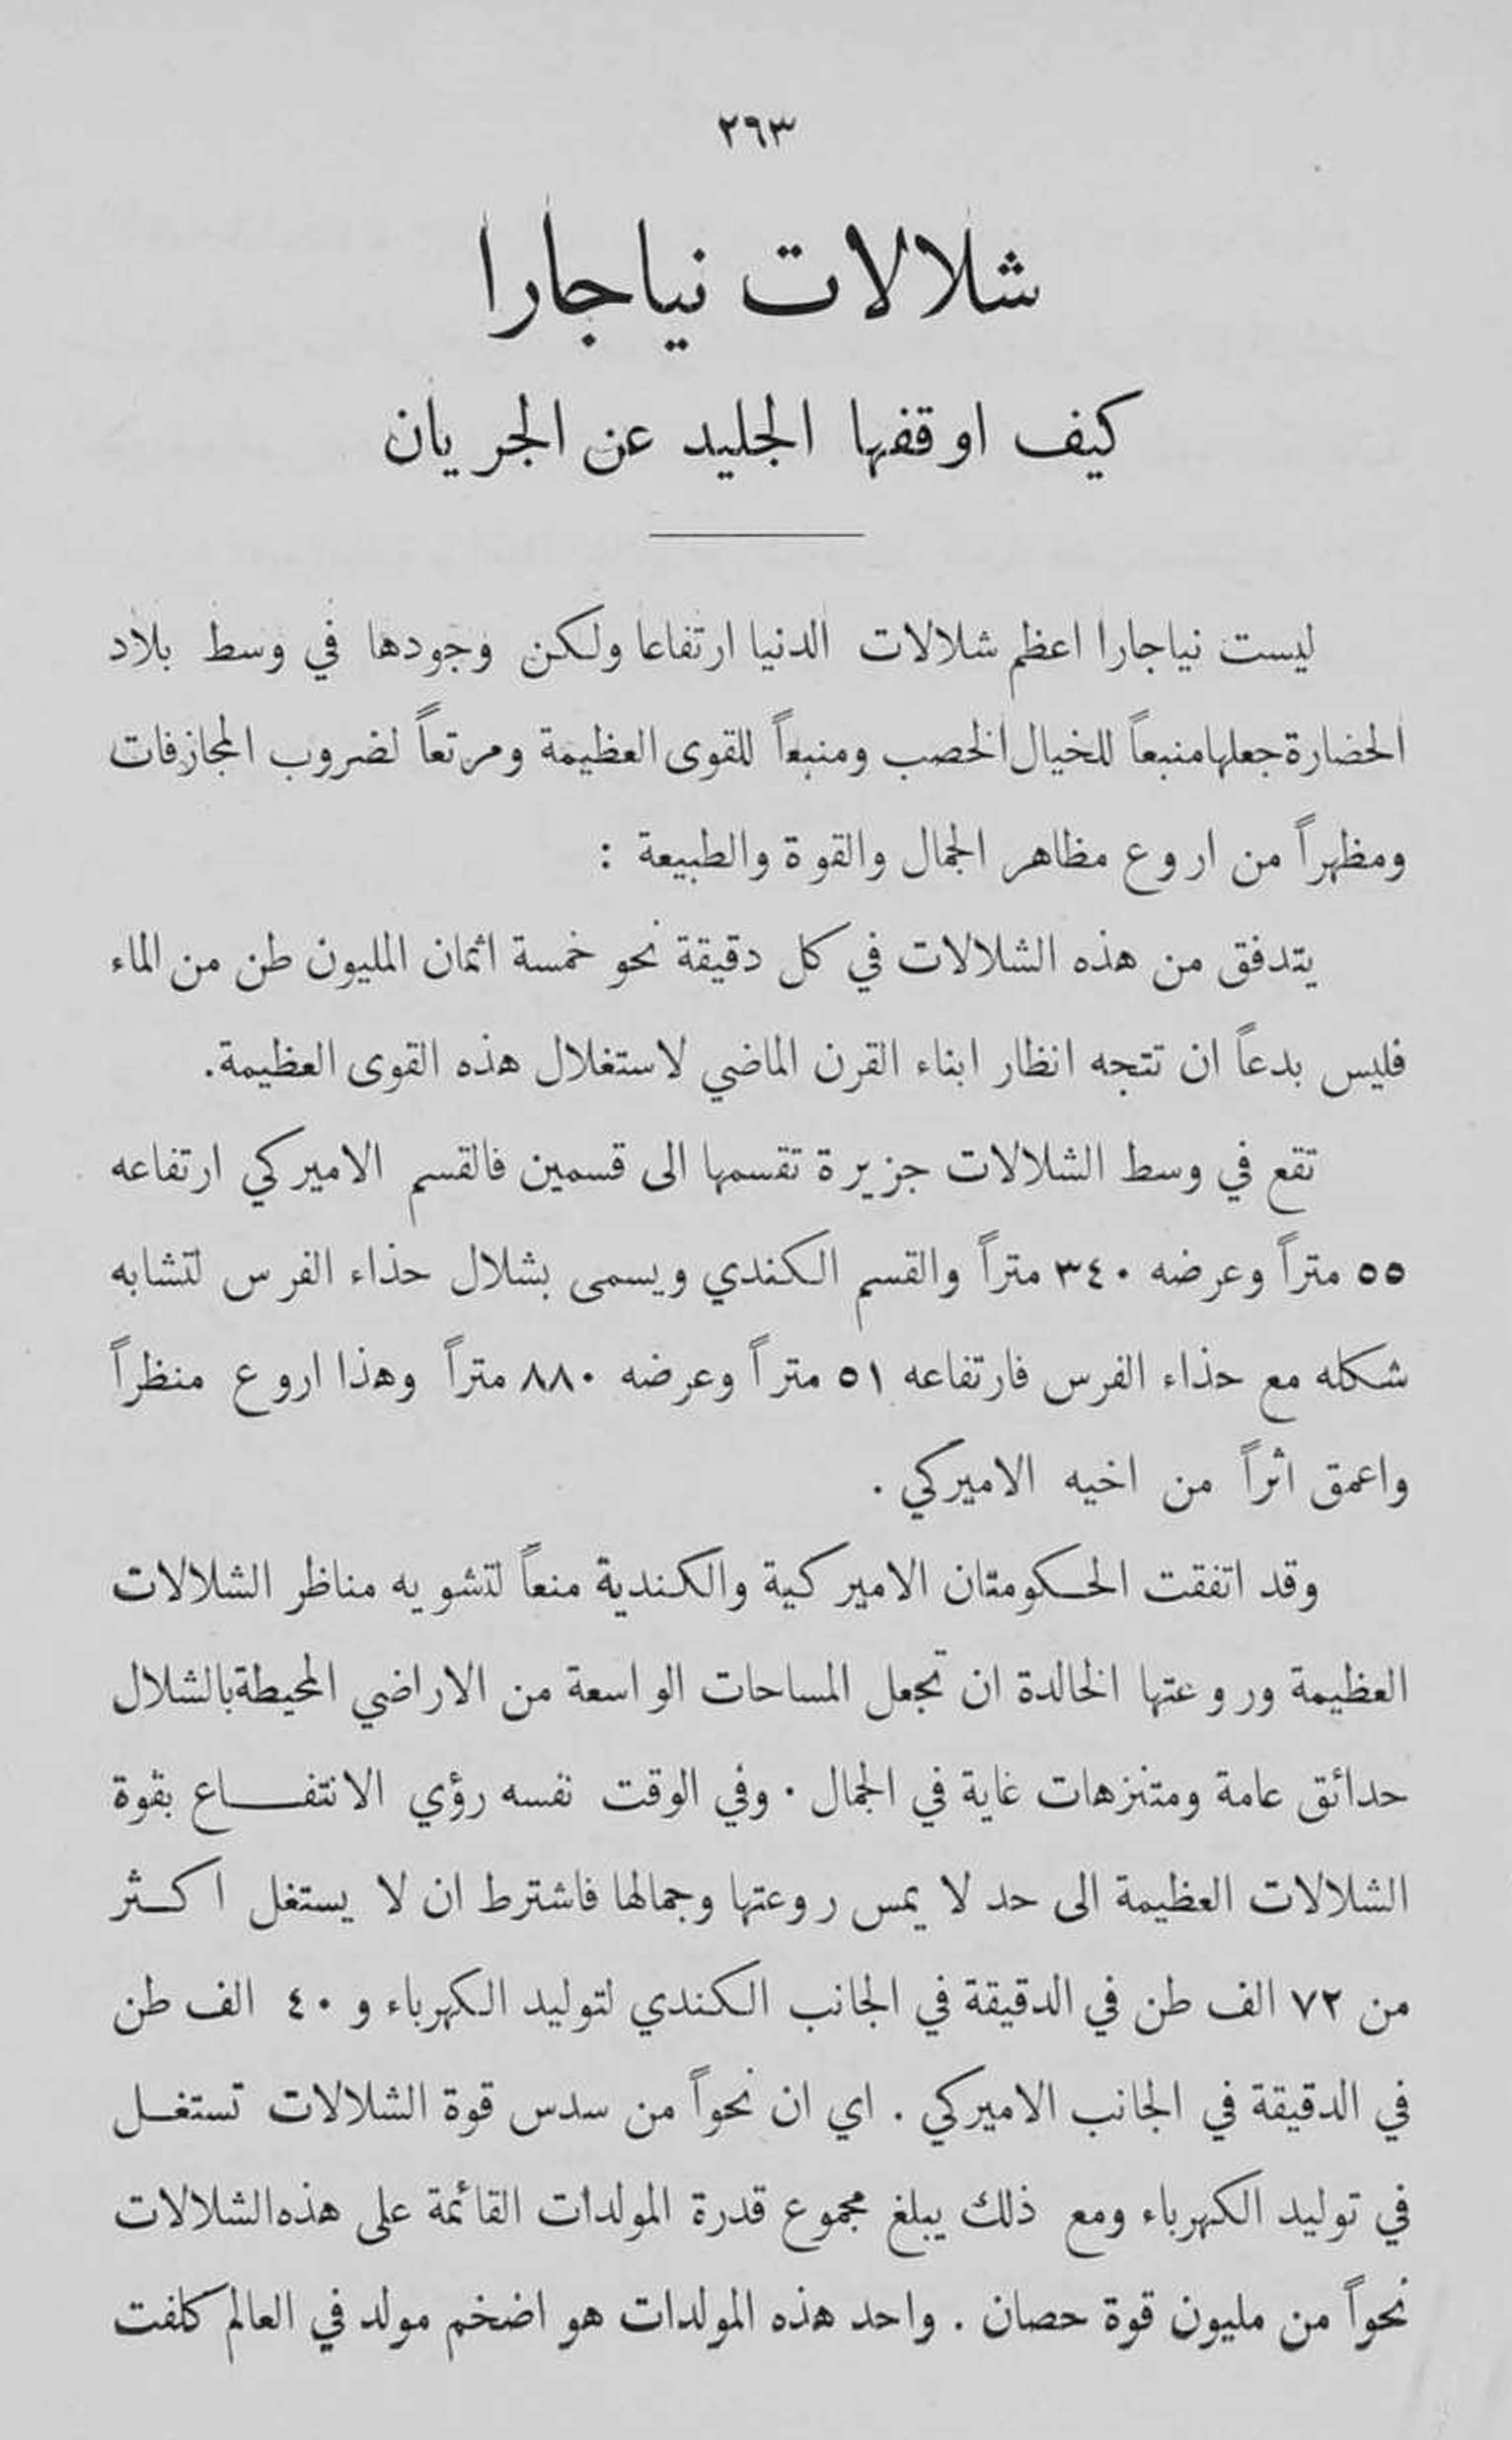 ٢٦٣
شلالات نياجارا
كيف اوقفها الجليد عن الجريان
ليست نياجارا اعظم شلالات الدنيا ارتفاعا ولكن وجودها في وسط بلاد
الحضارة جعلها منبعاً للخيال الخصب ومنبعاً للقوى العظيمة ومرتعاً لضروب المجازفات
ومظهراً من اروع مظاهر الجمال والقوة والطبيعة :
يتدفق من هذه الشلالات في كل دقيقة نحو خمسة اثمان المليون طن من الماء
فليس بدعاً ان تتجه انظار ابناء القرن الماضي لاستغلال هذه القوى العظيمة.
تقع في وسط الشلالات جزيرة تقسمها الى قسمين فالقسم الاميركي ارتفاعه
٥٥ متراً وعرضه ٣٤٠ متراً والقسم الكندي ويسمى بشلال حذاء الفرس لتشابه
شكله مع حذاء الفرس فارتفاعه ٥١ متراً وعرضه ٨٨٠ متراً وهذا اروع منظراً
واعمق اثراً من اخيه الاميركي .
وقد اتفقت الحكومتان الاميركية والكندية منعاً لتشويه مناظر الشلالات
العظيمة وروعتها الخالدة ان تجعل المساحات الواسعة من الاراضي المحيطة بالشلال
حدائق عامة ومتنزهات غاية في الجمال . وفي الوقت نفسه رؤي الانتفاع بقوة
الشلالات العظيمة الى حد لا يمس روعتها وجمالها فاشترط ان لا يستغل اكثر
من ٧٢ الف طن في الدقيقة في الجانب الكندي لتوليد الكهرباء و ٤٠ الف طن
في الدقيقة في الجانب الاميركي . اي ان نحواً من سدس قوة الشلالات تستغل
في توليد الكهرباء ومع ذلك يبلغ مجموع قدرة المولدات القائمة على هذه الشلالات
نحواً من مليون قوة حصان . واحد هذه المولدات هو اضخم مولد في العالم كلفت